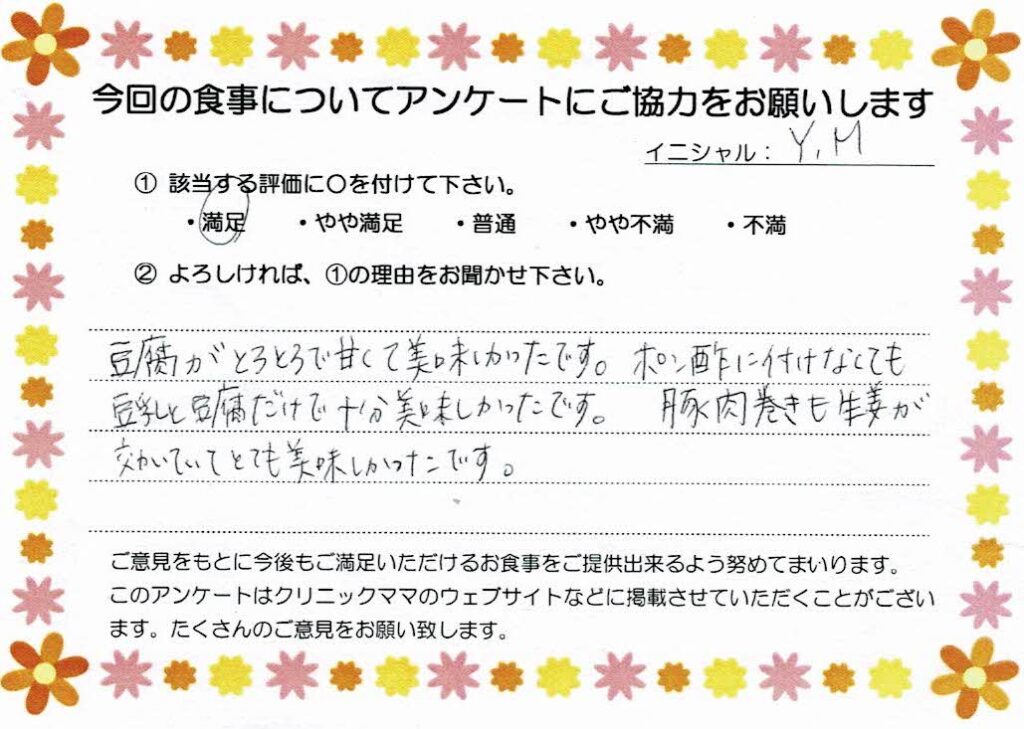 今回の食事についてアンケートにご協力をお願いします
イニシャル： Y.M
① 該当する評価に○を付けて下さい。
・満足　・やや満足　・普通　・やや不満　・不満
② よろしければ、①の理由をお聞かせ下さい。
豆腐がとろとろで甘くて美味しかったです。 ポン酢に付けなくても
豆乳と豆腐だけで十分美味しかったです。 豚肉巻きも生姜が
効いていてとても美味しかったです。
ご意見をもとに今後もご満足いただけるお食事をご提供出来るよう努めてまいります。
このアンケートはクリニックママのウェブサイトなどに掲載させていただくことがござい
ます。たくさんのご意見をお願い致します。